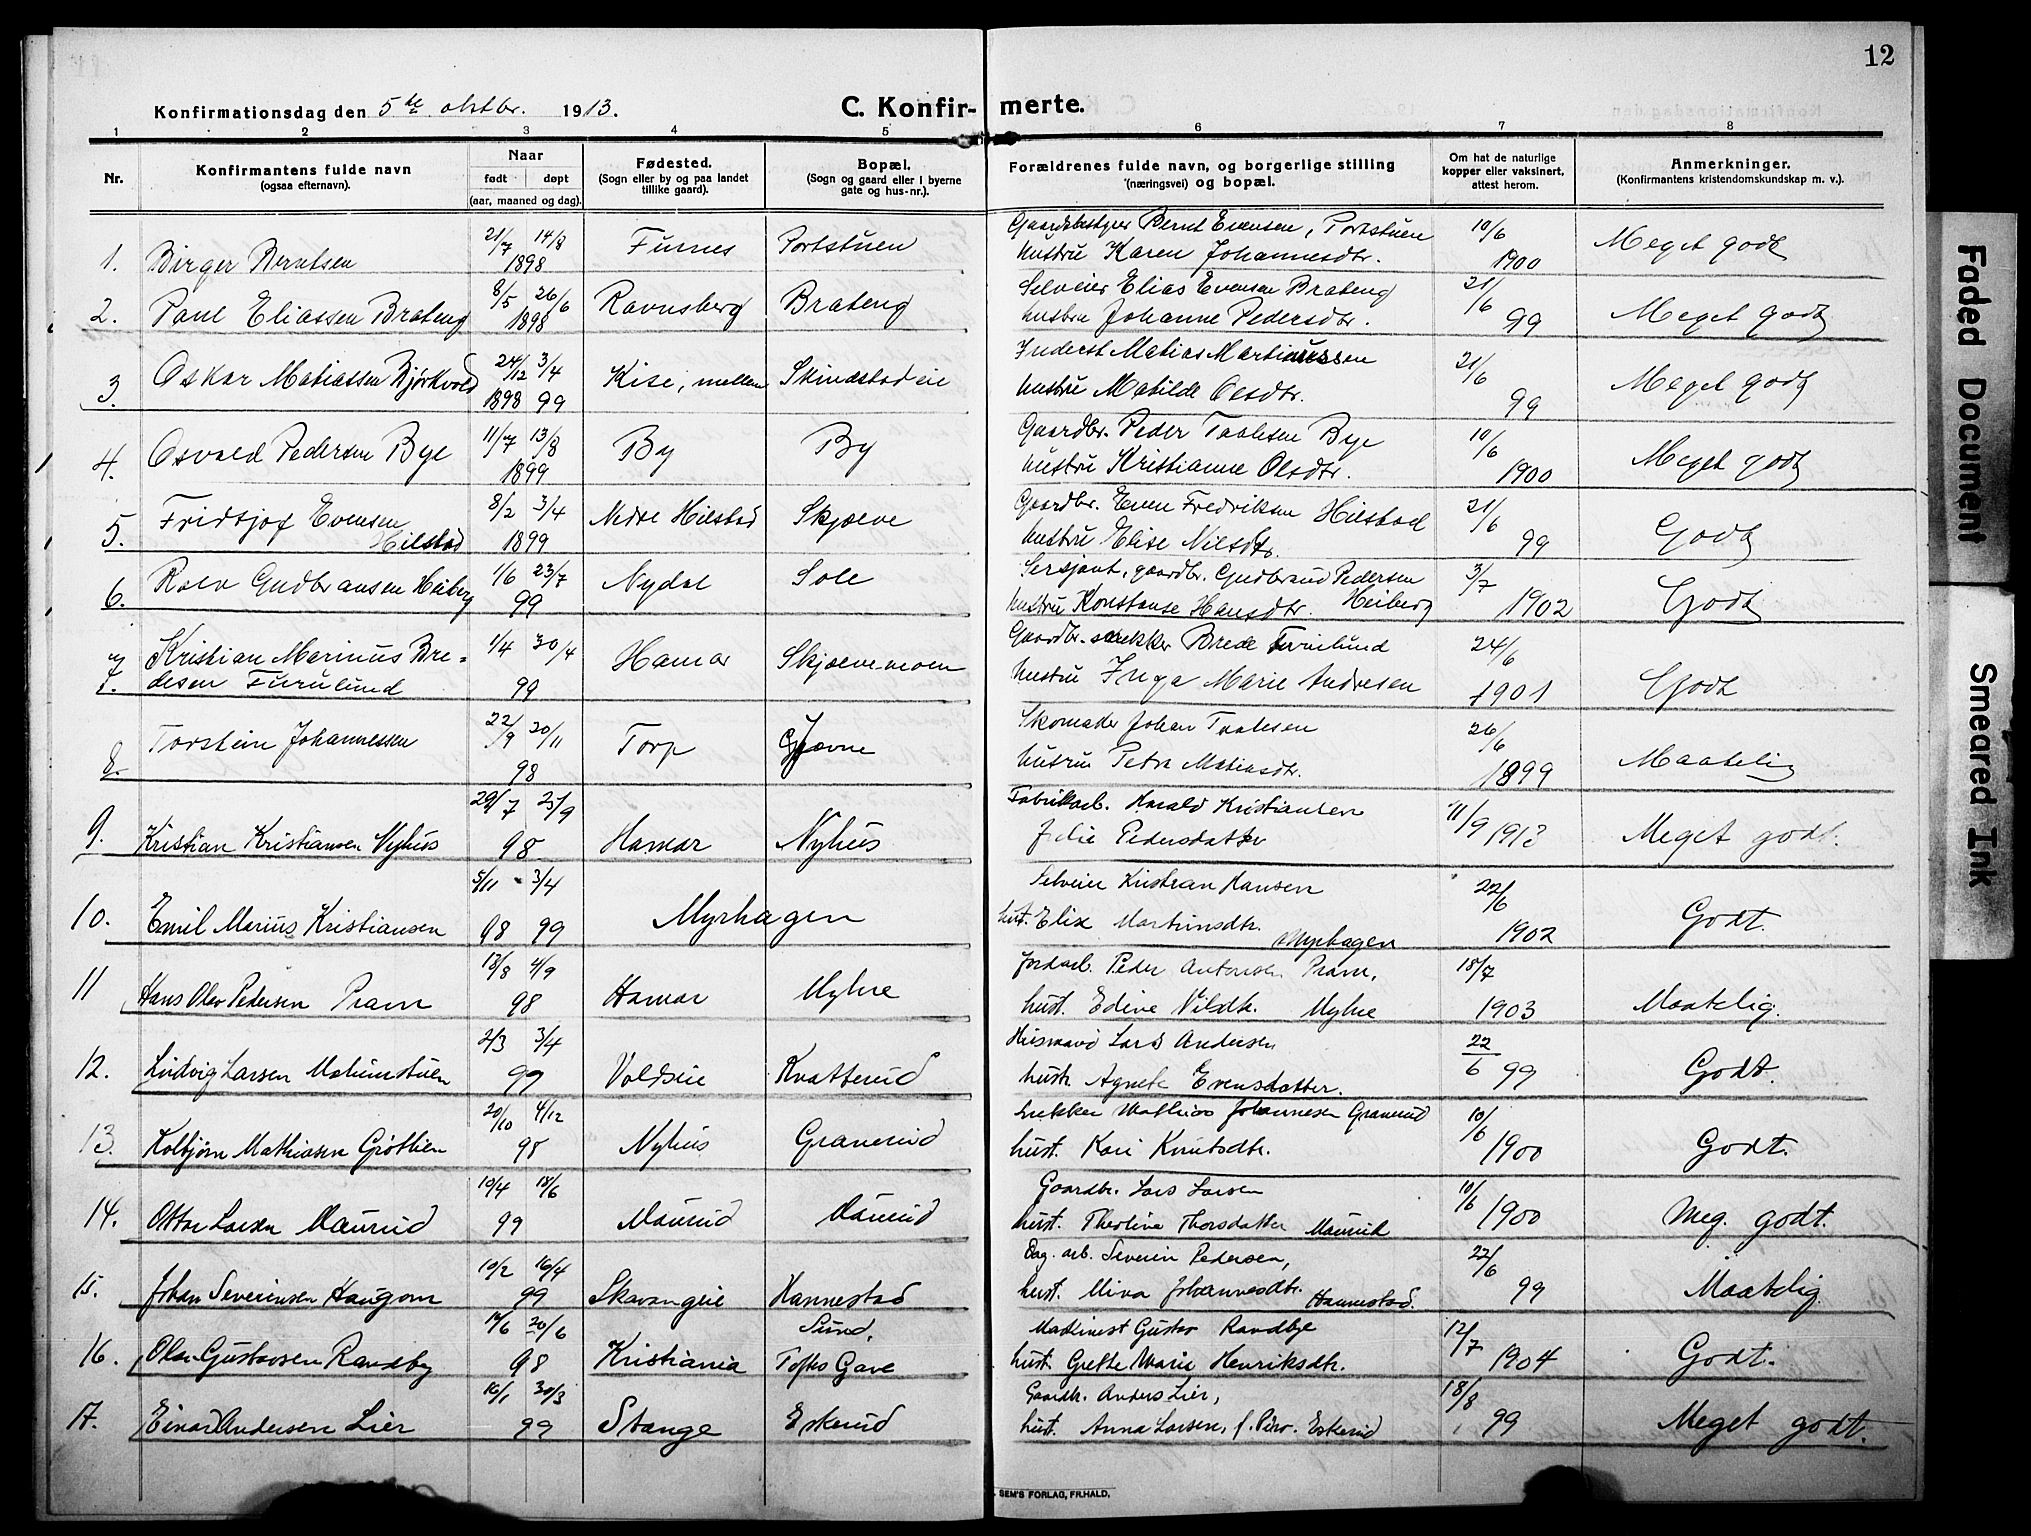 12
Konfirmationsdag den 5te oktbr. 1913. C. Konfirmerte.
1 2 3 4 5 6 7 8
Nr. Konfirmantens fulde navn (ogsaa efternavn). Naar født døpt (aar, maaned og dag). Fødested. (Sogn eller by og paa landet tillike gaard). Bopæl. (Sogn og gaard eller i byerne gate og hus-nr.). Forældrenes fulde navn, og borgerlige stilling (næringsvei) og bopæl. Om hat de naturlige kopper eller vaksinert, attest herom. Anmerkninger. (Konfirmantens kristendomskundskap m. v.).
1. Birger Berntsen 21/7 14/8 1898 Furnes Portstuen Gaardsbestyrer Bernt Evensen, Portstuen 10/6 1900 Meget godt
hustru Karen Johannesdtr.
2. Paul Eliassen Brateng 8/5 26/6 1898 Ravnsberg Brateng Selveier Elias Evensen Brateng 21/6 99 Meget godt
hustru Johanne Pedersdtr.
3. Oskar Matiassen Bjørkvold 24/12 1898 3/4 99 Kise, mellem Skindstadeie Inderst Matias Martinussen 21/6 99 Meget godt
hustru Matilde Olsdtr.
4. Osvald Pedersen Bye 11/7 13/8 1899 By By Gaardbr. Peder Taalesen Bye 10/6 1900 Meget godt
hustru Kristianne Olsdtr.
5. Fridtjof Evensen Hilstad 8/2 3/4 1899 Nedre Hilstad Skjæve Gaardbr. Even Fredriksen Hilstad 21/6 99 Godt
hustru Elise Nilsdtr.
6. Rolv Gudbransen Heiberg 1/6 23/7 99 Nydal Sole Sersjant, gaardbr. Gudbrand Pedersen Heiberg 3/7 1902 Godt
hustru Konstanse Hansdtr.
7. Kristian Marinus Bredesen Furulund 1/4 30/4 99 Hamar Skjævemoen Gaardbr. snekker Brede Furulund 24/6 1901 Godt
hustru Inga Marie Andresen
8. Torstein Johannessen 22/9 20/11 98 Torp Gjævne Skomaker Johan Taalesen 26/6 1899 Maatelig
hustru Petra Matiasdtr.
9. Kristian Kristiansen Nyhus 29/7 25/9 98 Hamar Nyhus Fabrikarb. Harald Kristiansen 11/9 1913 Meget godt.
Julie Pedersdatter
10. Emil Marius Kristiansen 5/11 98 3/4 99 Myrhagen Selveier Kristian Hansen 22/6 1902 Godt.
hust. Elise Martinsdtr. Myrhagen
11 Hans Olav Pedersen Pram 13/8 4/9 98 Hamar Myhre Jordarb. Peder Antonsen Pram, 18/7 1903 Maatelig.
hust. Edine Nilsdtr. Myhre
12. Ludvig Larsen Malumstuen 2/3 3/4 99 Voldseie Kvatterud Husmand Lars Andersen 22/6 99 Godt.
hustr. Agnete Evensdatter.
13. Kolbjørn Mathiasen Grøtlien 20/10 4/12 98 Nyhus Granerud Snekker Mathias Johannesen Granerud 10/6 1900 Godt.
hust. Kari Knutsdtr.
14. Ottar Larsen Maurud 10/4 18/6 99 Maurud Maurud Gaardbr. Lars Larsen 10/6 1900 Meg. godt.
hust. Theoline Thorsdatter Maurud
15. Johan Severinsen Haugom 10/2 16/4 99 Skavangeie Hannestad Dag. arb. Severin Pedersen, 22/6 99 Maatelig
hust. Mina Johannesdtr. Hannestad.
16. Olav Gustavsen Randby 17/6 20/6 98 Kristiania Sund, Toftes Gave Maskinist Gustav Randbye 12/7 1904 Godt.
hust. Grethe Marie Henriksdtr.
17. Einar Andersen Lier 16/1 30/3 99 Stange Eskerud Gaardbr. Anders Lier, 18/8 99 Meget godt.
hust. Anna Larsen, f. Eskerud
SEM'S FORLAG, FR.HALD.
Faded Document
Smeared Ink